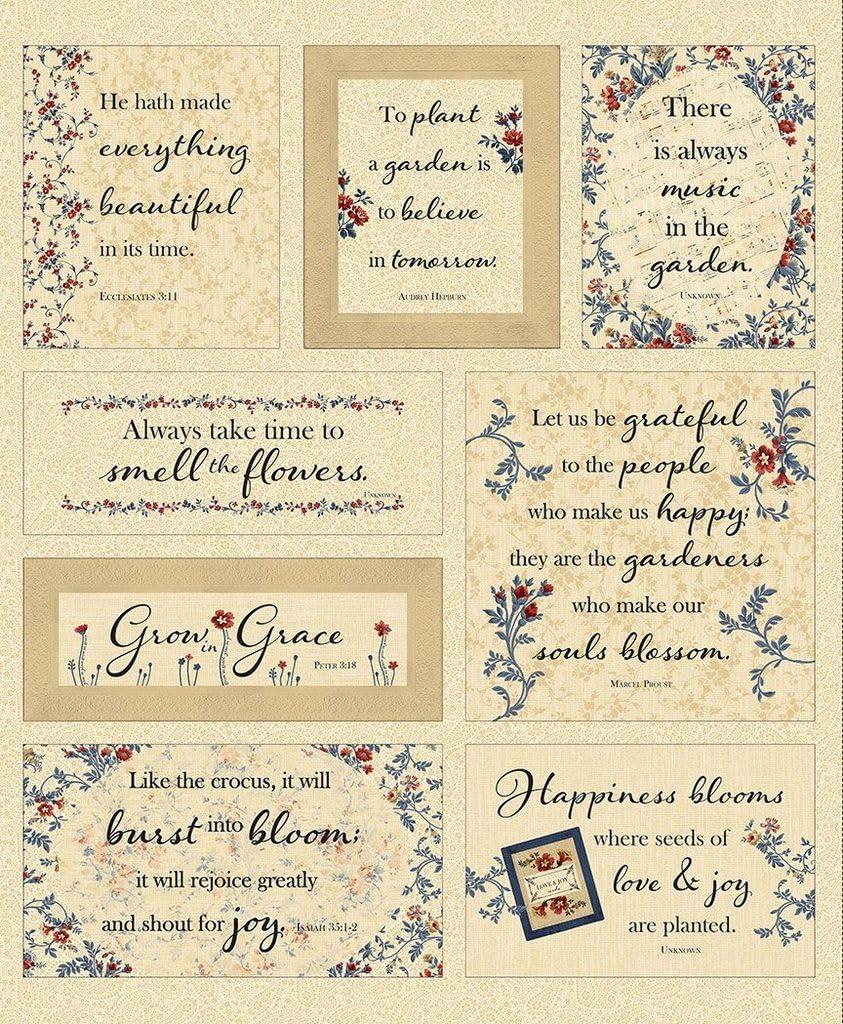 He hath made
everything
beautiful
in its time.
Ecclesiates 3:11
To plant
a garden is
to believe
in tomorrow.
Audrey Hepburn
There
is always
music
in the
garden.
Unknown
Always take time to
smell the flowers.
Unknown
Let us be grateful
to the people
who make us happy;
they are the gardeners
who make our
souls blossom.
Marcel Proust
Grow in Grace
Peter 3:18
Like the crocus, it will
burst into bloom;
it will rejoice greatly
and shout for joy. Isaiah 35:1-2
Happiness blooms
where seeds of
LOVE & JOY
love & joy
are planted.
Unknown